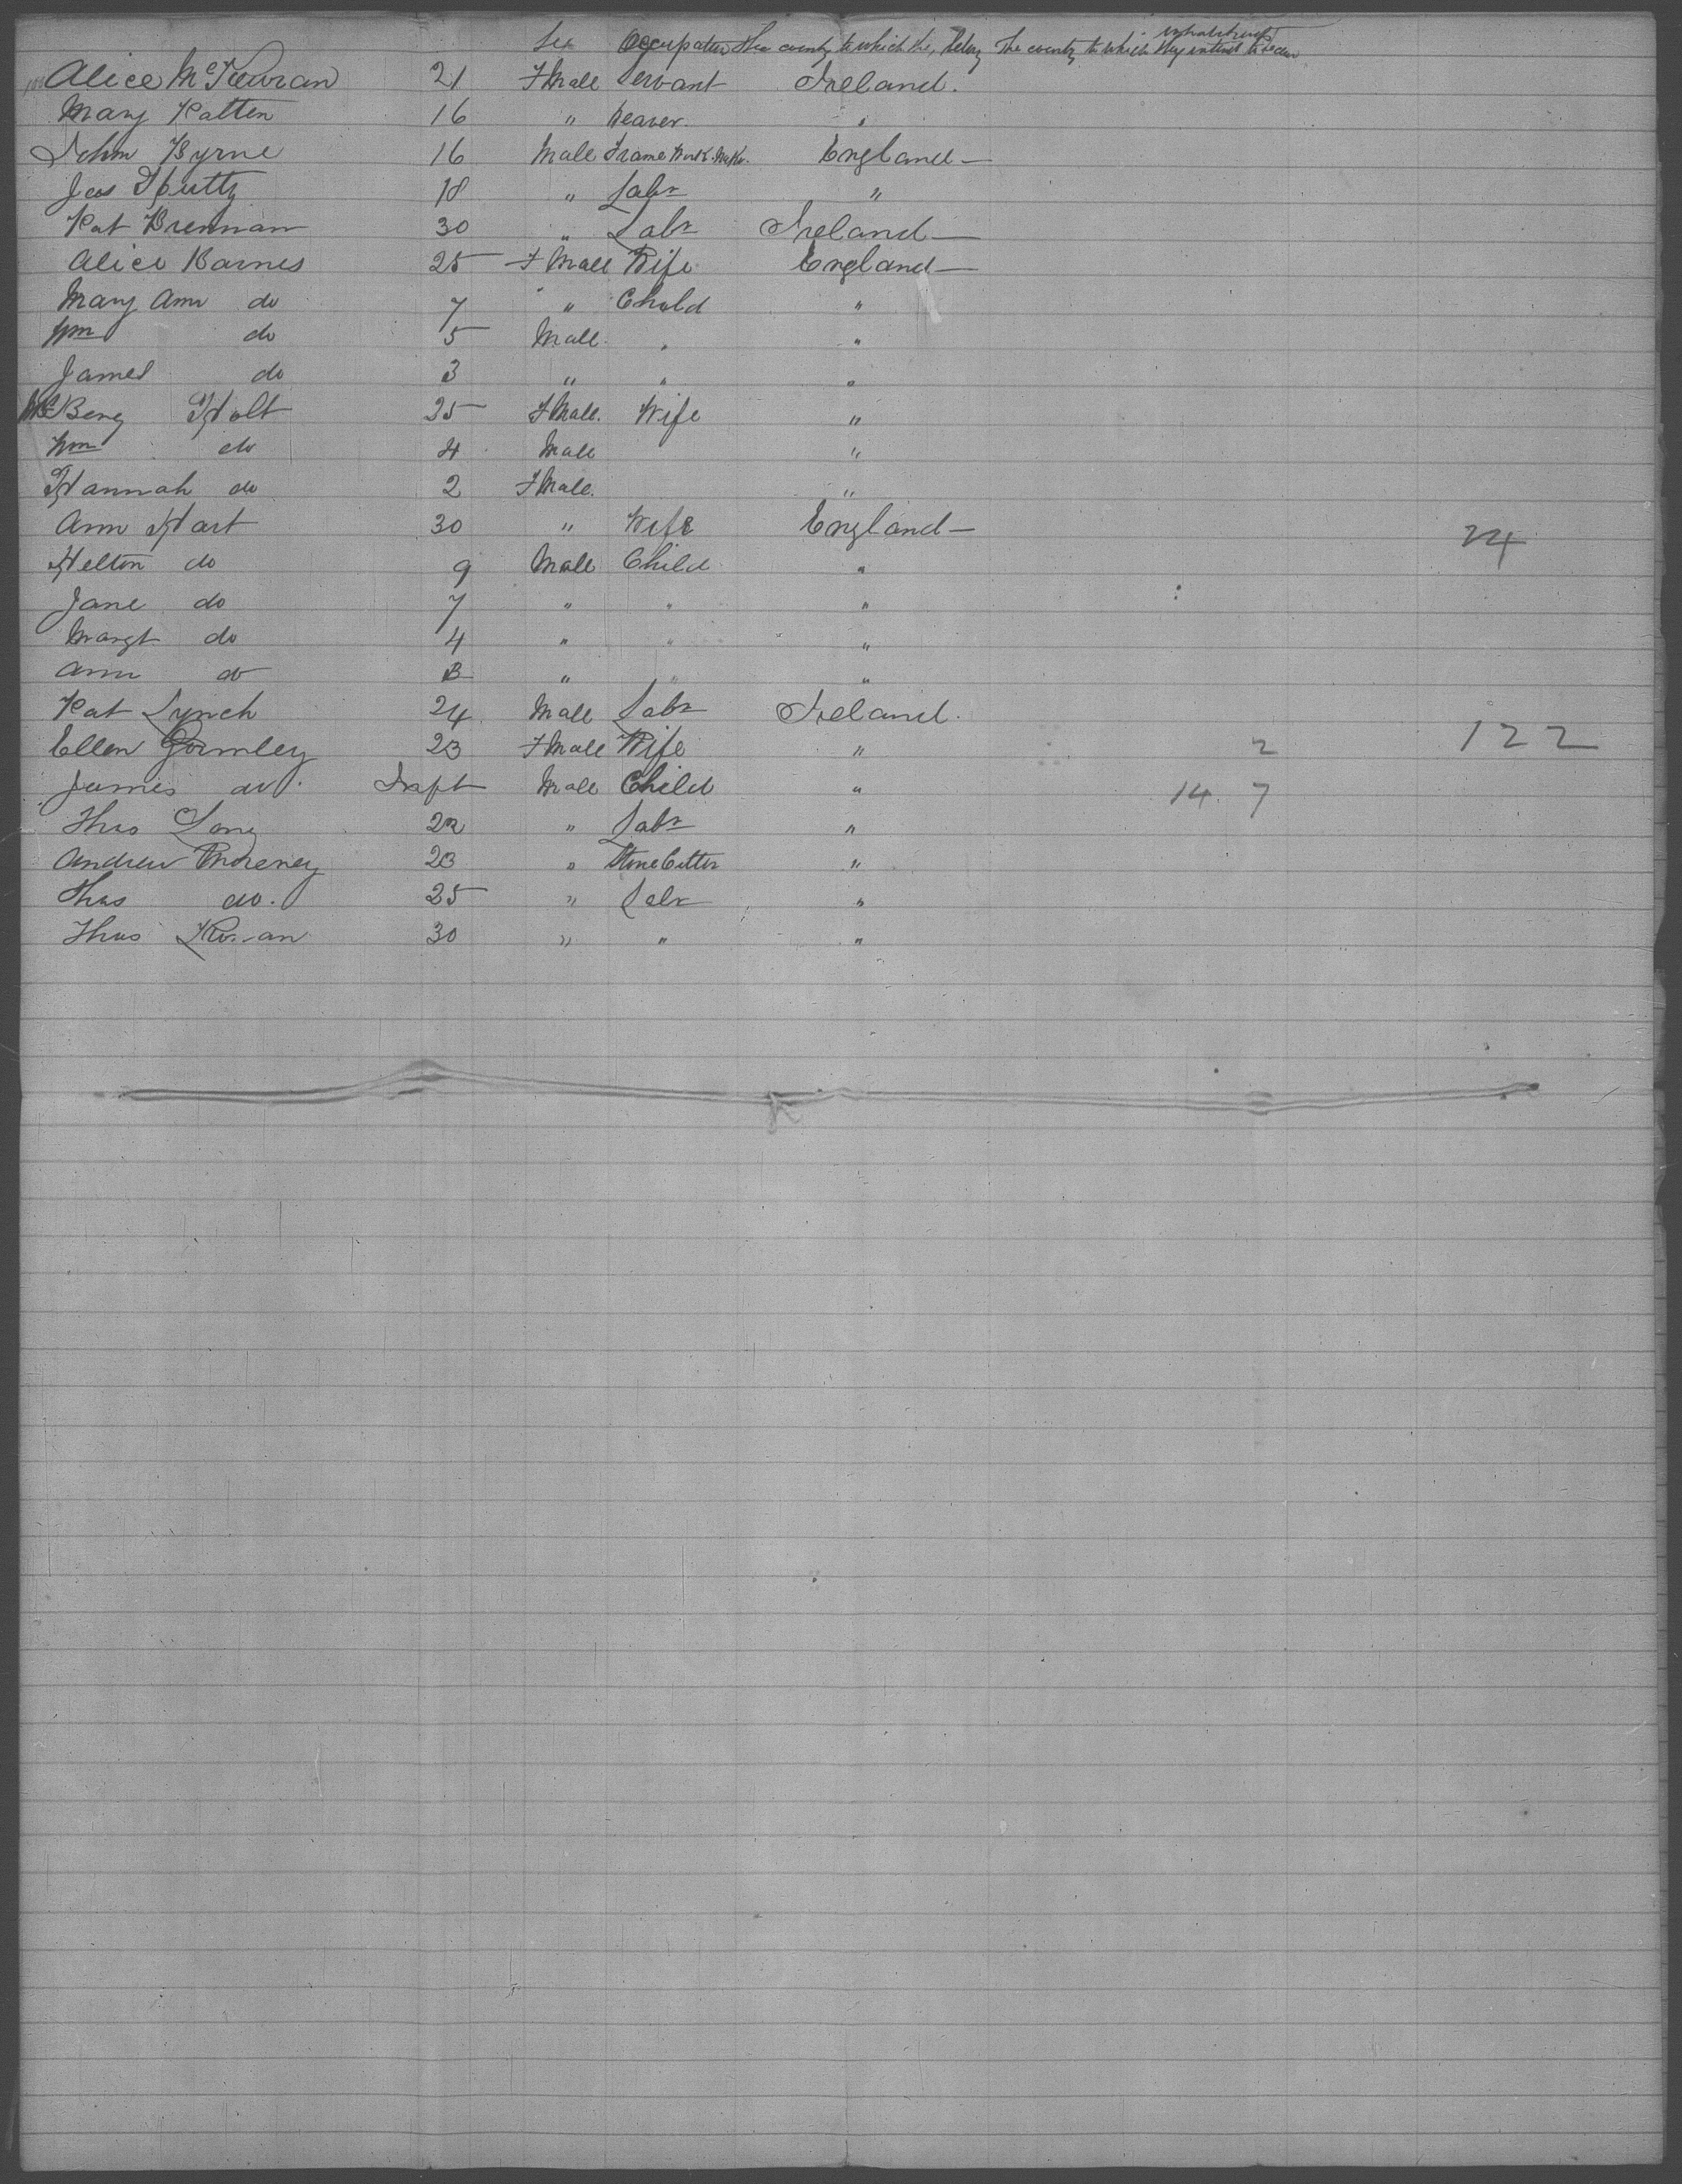 Sex Occupation The country to which they belong The country to which they intend to become inhabitants
Alice McGowran 21 Fmale Servant Ireland.
Mary Patten 16 " Weaver. "
John Byrne 16 Male Frame Work. England —
Jas 18 " Labr "
Pat Brennan 30 " Labr Ireland —
Alice Barnes 25 Fmale Wife England —
Mary Ann do 7 " Child "
Wm do 5 Male " "
James do 3 " " "
Holt 25 Fmale. Wife "
Wm do 4 Male "
Hannah do 2 Fmale. "
Ann Hart 30 " Wife England — 24
do 9 Male Child "
Jane do 7 " " "
Margt do 4 " " "
Ann do " " "
Pat Lynch 24 Male Labr Ireland.
Ellen Gormley 23 Fmale Wife " 2 122
James do. Inft Male Child " 14. 7
Thos Long 22 " Labr "
Andrew 23 " Stone Cutter "
Thos do. 25 " Labr "
Thos 30 " " "